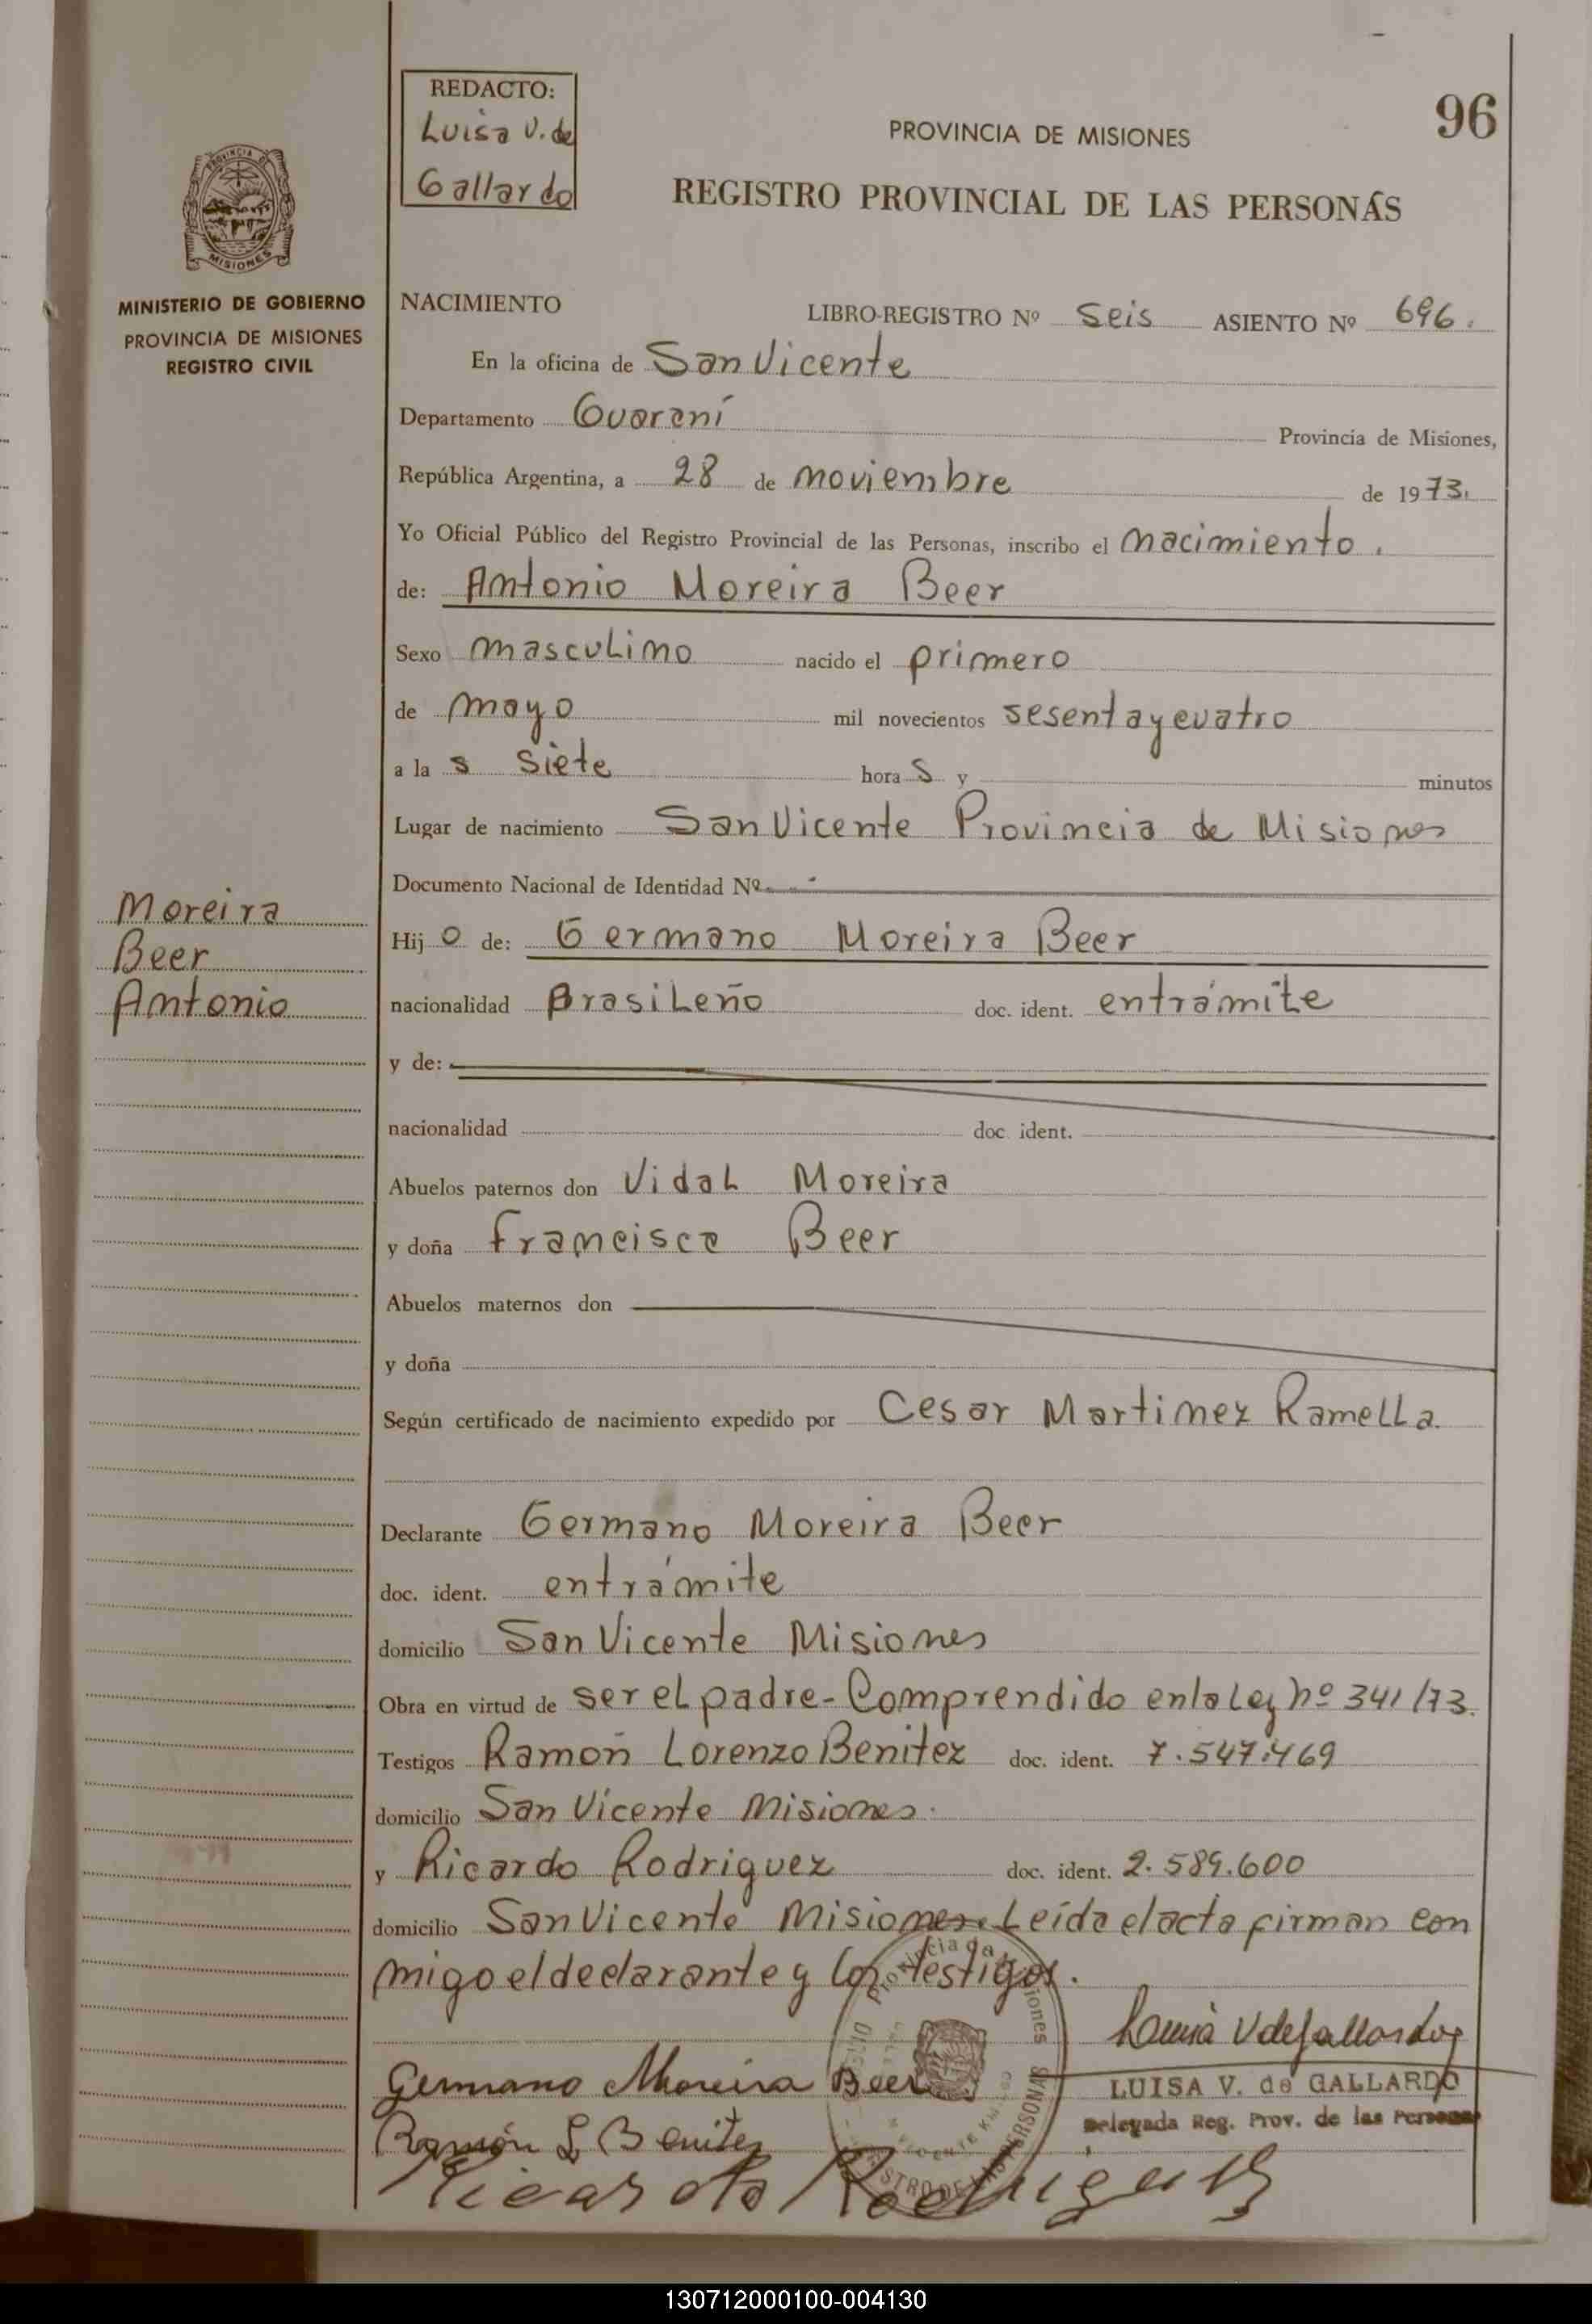 REDACTO:
Luisa V. de
Gallardo
96
PROVINCIA DE MISIONES
REGISTRO PROVINCIAL DE LAS PERSONAS
PROVINCIA DE
MISIONES
MINISTERIO DE GOBIERNO
PROVINCIA DE MISIONES
REGISTRO CIVIL
NACIMIENTO LIBRO-REGISTRO Nº seis ASIENTO Nº 696.
En la oficina de San Vicente
Departamento Guaraní Provincia de Misiones,
República Argentina, a 28 de noviembre de 1973.
Yo Oficial Público del Registro Provincial de las Personas, inscribo el nacimiento.
de: Antonio Moreira Beer
Sexo masculino nacido el primero
de mayo mil novecientos sesenta y cuatro
a la s siete hora s y minutos
Lugar de nacimiento San Vicente Provincia de Misiones
Documento Nacional de Identidad Nº
Moreira
Beer
Antonio
Hij o de: Germano Moreira Beer
nacionalidad Brasileño doc. ident. entrámite
y de:
nacionalidad doc. ident.
Abuelos paternos don Vidal Moreira
y doña Francisca Beer
Abuelos maternos don
y doña
Según certificado de nacimiento expedido por Cesar Martinez Ramella.
Declarante Germano Moreira Beer
doc. ident. entrámite
domicilio San Vicente Misiones
Obra en virtud de ser el padre - Comprendido en la Ley nº 341/73.
Testigos Ramón Lorenzo Benitez doc. ident. 7.547.469
domicilio San Vicente Misiones.
y Ricardo Rodriguez doc. ident. 2.589.600
domicilio San Vicente Misiones. Leída el acta firman con
migo el declarante y los testigos.
Luisa V de Gallardo
Germano Moreira Beer
LUISA V. de GALLARDO
Delegada Reg. Prov. de las Personas
Ramón L Benitez
Ricardo Rodriguez
130712000100-004130